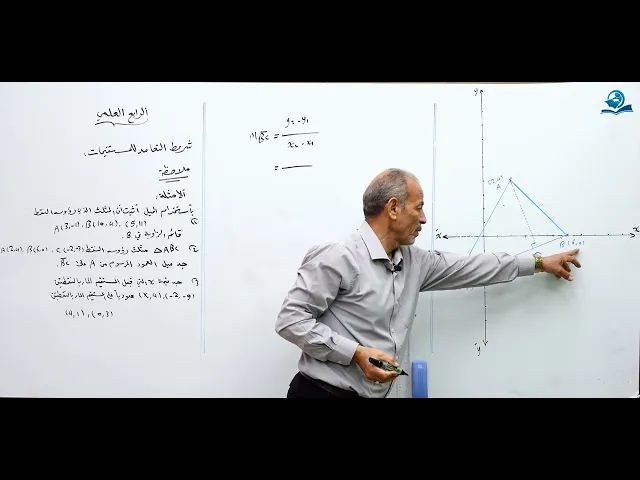 الرابع العلمي
شروط التعامد للمستقيمات:
ملاحظة
الأمثلة:
بأستخدام الميل أثبت أن المثلث الذي رؤوسه النقط
A(3,-1), B(10,4), (5,11)
قائم الزاوية في B.
ABC △ مثلث رؤوسه النقط A(2,4), B(6,0), C(-2,-3)
جد ميل العمود المرسوم من A على BC
جد قيمة x التي تجعل المستقيم المار بالنقطتين
(x,4), (-2,-9) عمودياً على المستقيم المار بالنقطتين
(4,1), (0,3)
mBC = y₂-y₁ / x₂-x₁
=
y
(2,4)
A
x
x
B (6,0)
y